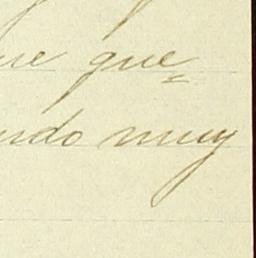 ue que
ndo muy